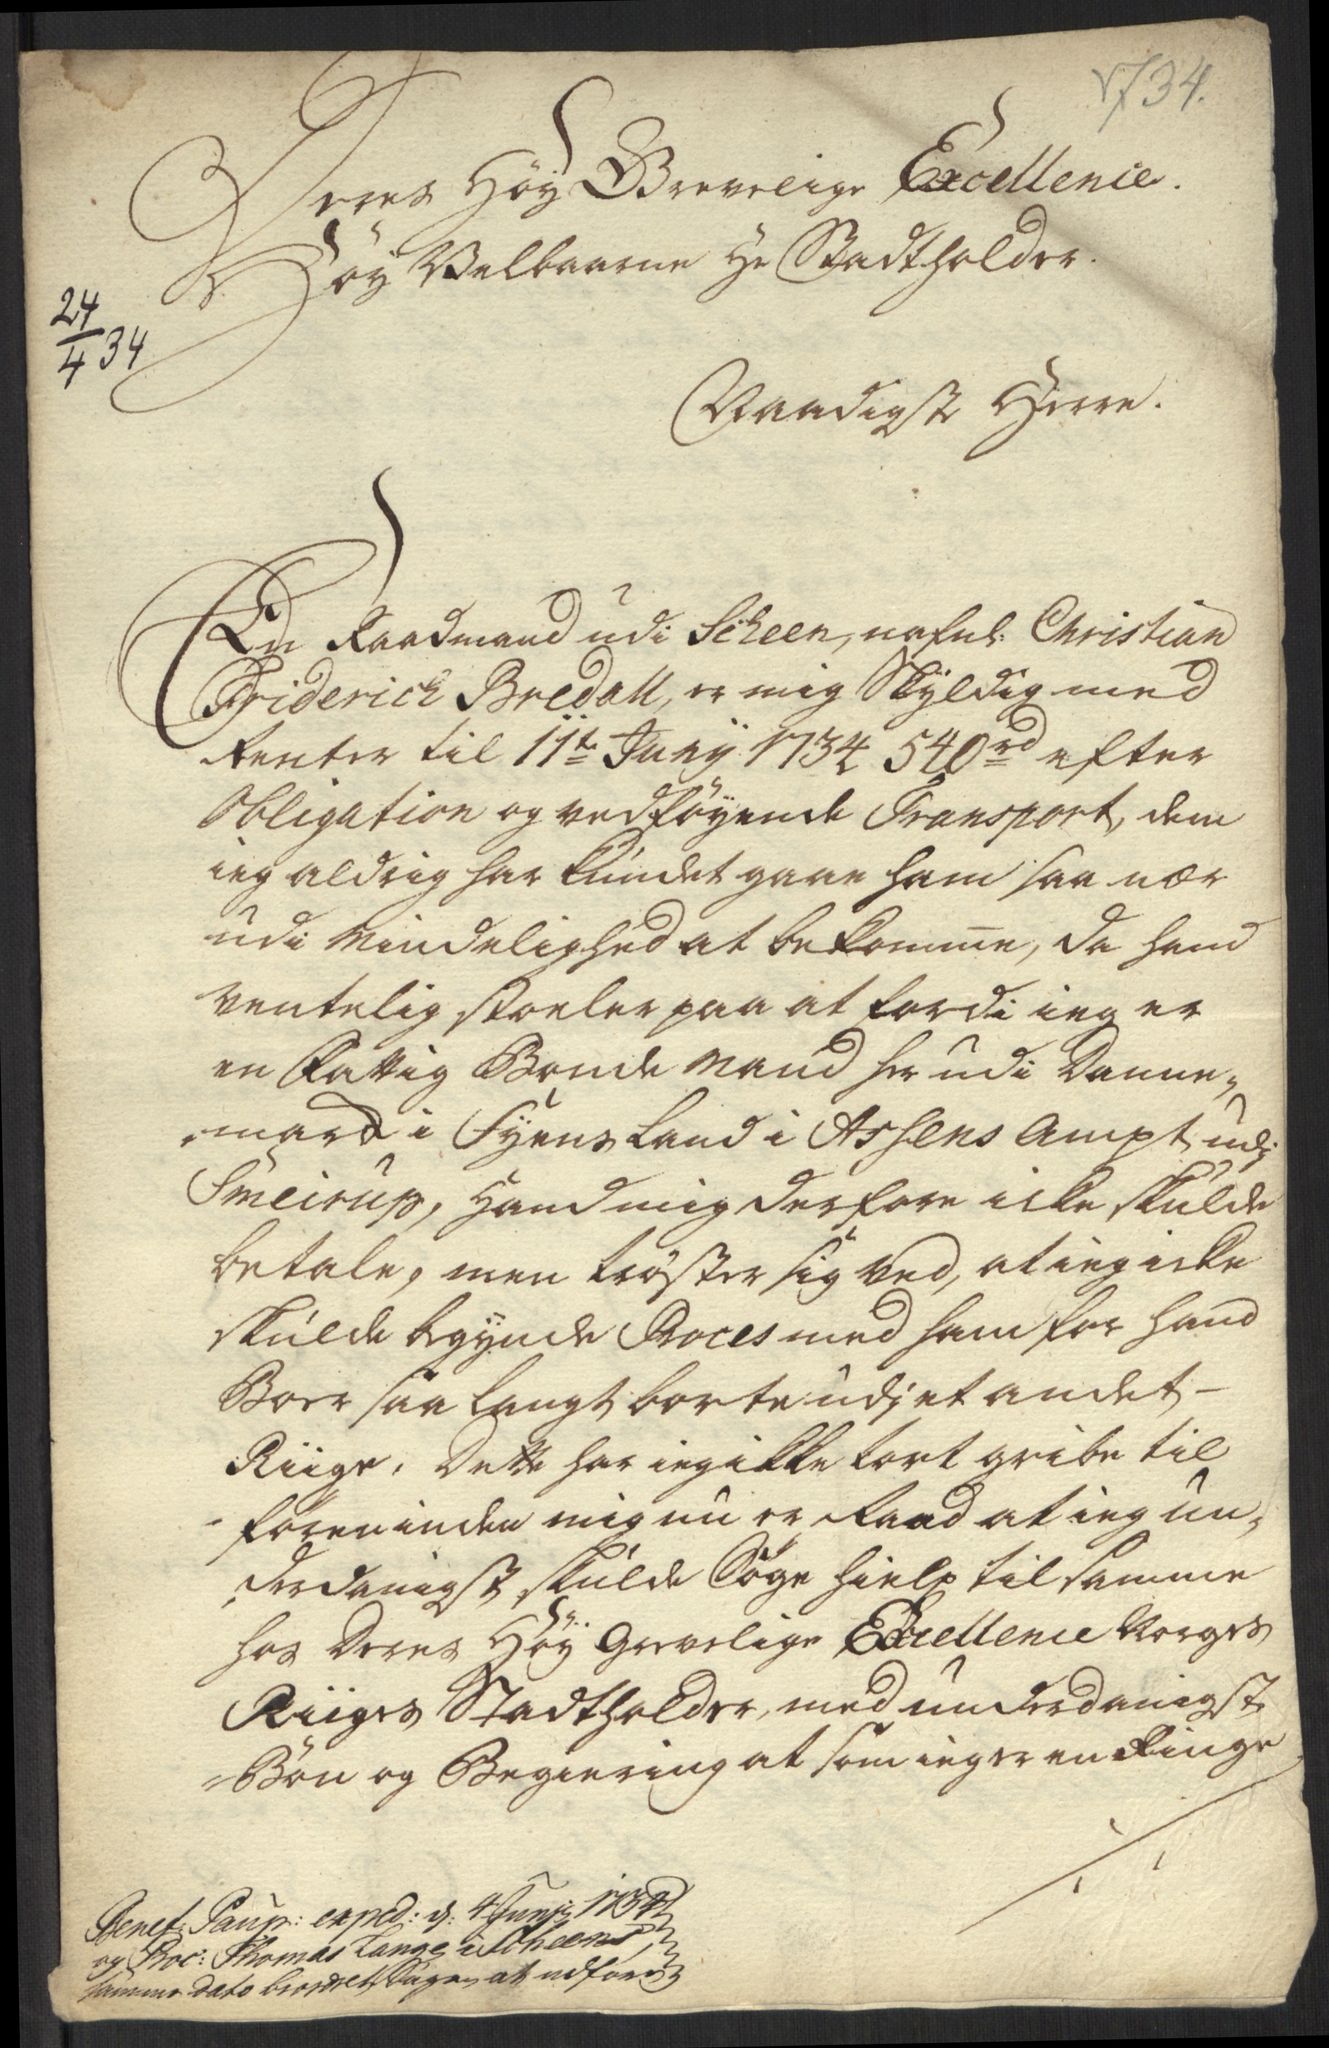 1734.
Deres Høy Grevelige Excellence.
Høy Velbaarne Hr Stadtholder.
24/4 34
Naadigste Herre.
En Raadmand udi Scheen, nafnl: Christian
Friderich Bredall, er mig skyldig med
Renter til 11te Juny 1734 540rd efter
Obligation og vedføyende Transport, dem
ieg aldrig har kundet gaae ham saa nær
udi Mindelighed at bekomme, da hand
ventelig stoeler paa at fordi ieg er
en Fattig Bonde Mand her udi Danne,,
,,mark i Fyens Land i Assens Ampt udj
Smeirup, Hand mig derfore icke skulde
betale, men trøster sig ved, at ieg icke
skulde begynde Proces med ham for hand
Boer saa langt borte udj et andet
Riige. Dette har ieg ikke tort gribe til
førend inden mig nu er Raad at ieg un,,
,,derdanigst skulde Søge hielp til samme
hos Deres Høy Grevelige Excellence Norges
Riiges Stadtholder, med underdanigst
Bøn og Begiering at som ieg er en Ringe
Benef: Paup: exped: d: 4 Junij 1734
og Proc: Thomas Lange i Scheen
samme dato beordret Sagen at udføre